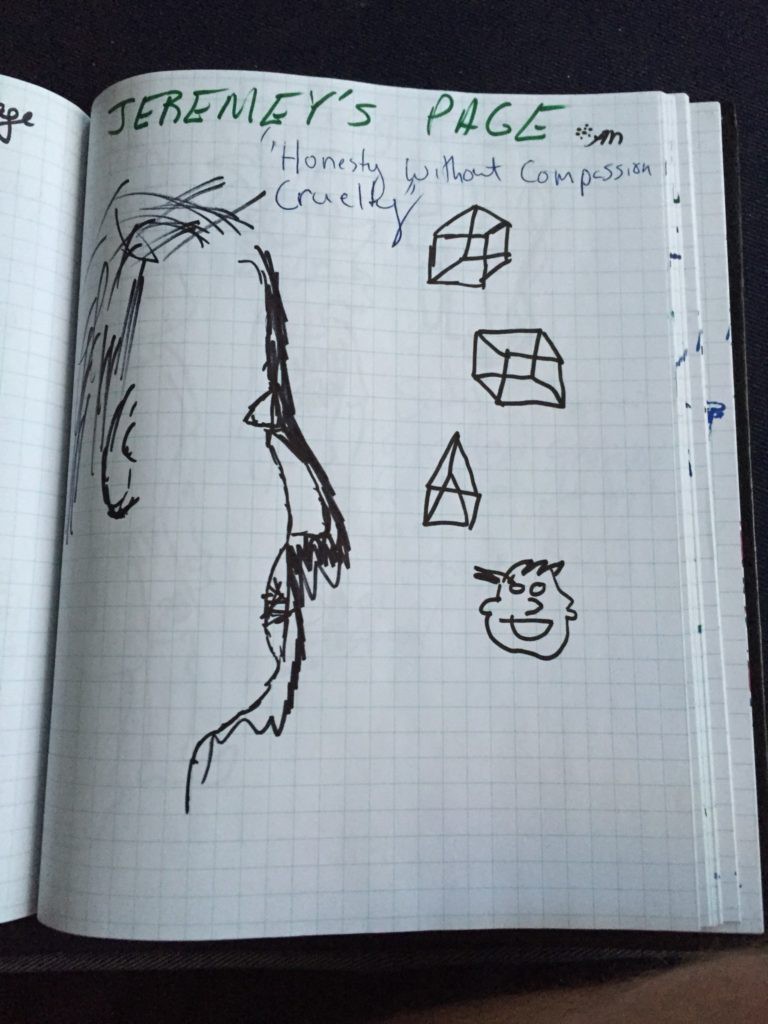 age
JEREMEY'S PAGE
"Honesty without Compassion
Cruelty"